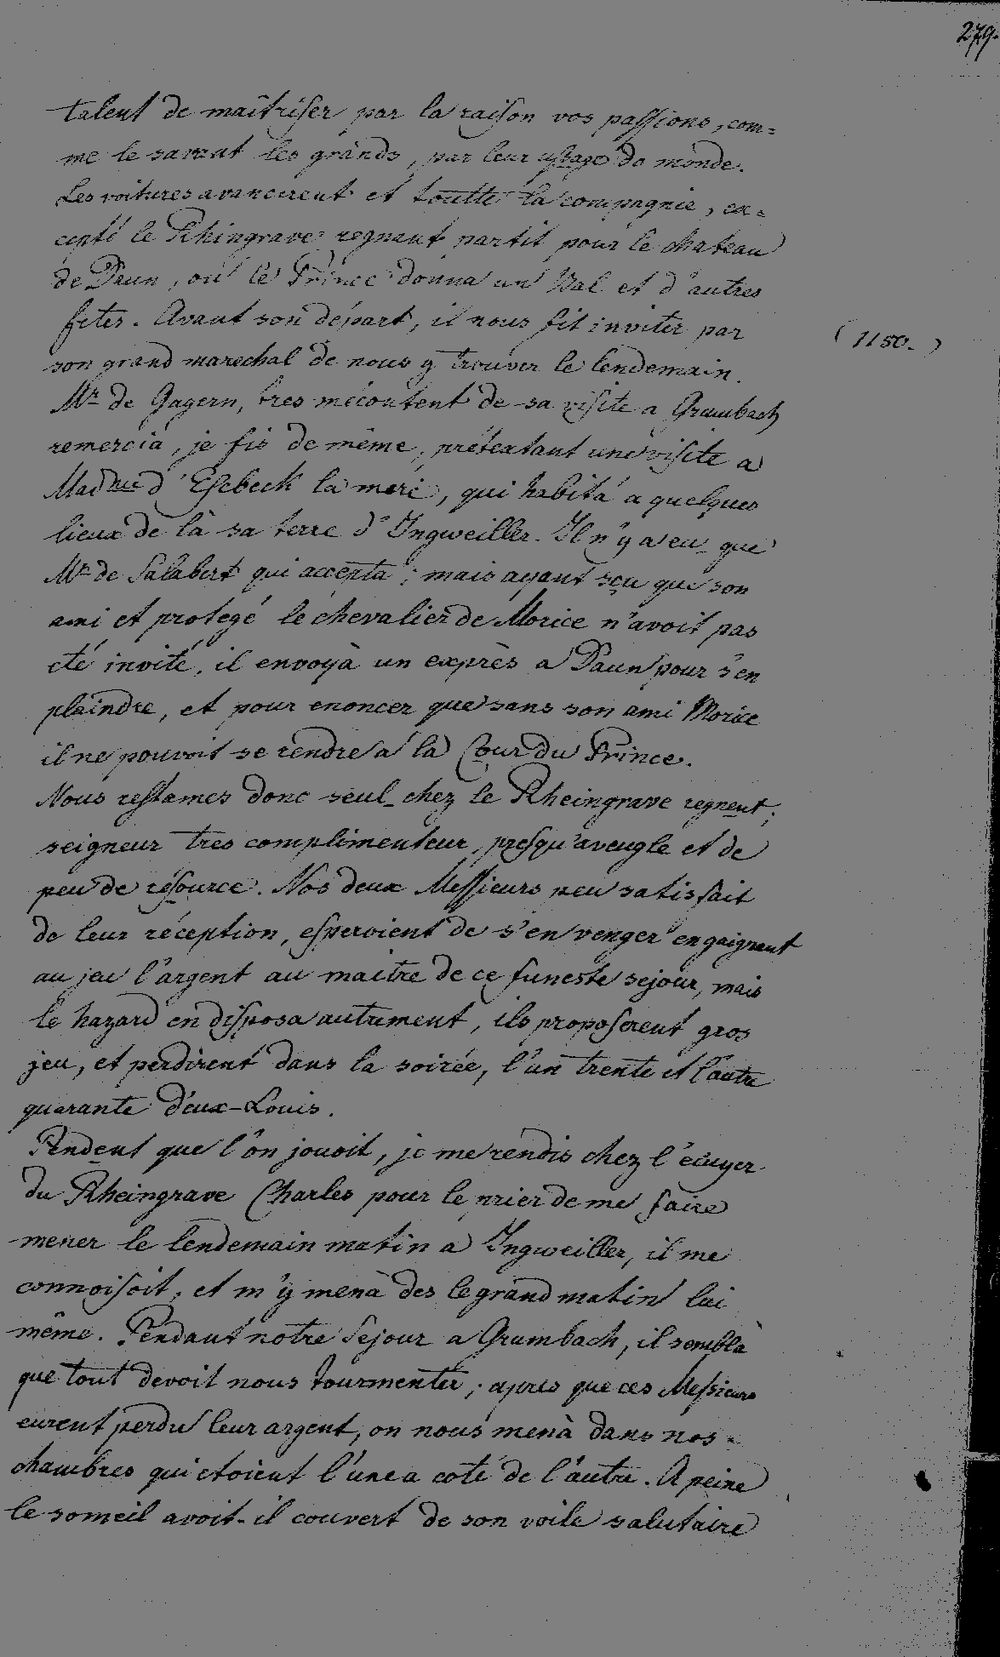 279.
talent de maîtriser par la raison vos passions, com=
me le savent les grands, par leur usage du monde.
Les voitures avancerent et toutte la compagnie, ex=
cepté le Rhingrave regnant partit pour le chateau
de Daun, où le Prince donna un Bal et d'autres
fetes. Avant son départ, il nous fit inviter par
(1150.)
son grand marechal de nous y trouver le lendemain.
Mr de Gagern, tres mécontent de sa visite a Grumbach
remercia, je fis de même, prétextant une visite a
Madme d'Esebeck la mere, qui habita a quelques
lieux de là sa terre d'Ingweiller. Il n'y a eu que
Mr de Salabert qui accepta; mais ayant sçu que son
ami et protegé le chevalier de Morice n'avoit pas
été invité, il envoyà un exprès a Daun pour s'en
plaindre, et pour enoncer que sans son ami Morice
il ne pouvoit se rendre a la Cour du Prince.
Nous restames donc seul chez le Rheingrave regnent;
seigneur tres complimenteur, presqu'aveugle et de
peu de résource. Nos deux Messieurs peu satisfait
de leur réception, esperoient de s'en venger en gaignent
au jeu l'argent au maitre de ce funeste sejour, mais
le hazard en disposa autrement, ils proposerent gros
jeu, et perdirent dans la soirée, l'un trente et l'autre
quarante deux-Louis.
Pendent que l'on jouoit, je me rendis chez l'ecuyer
du Rheingrave Charles pour le prier de me faire
mener le lendemain matin a Ingweiller, il me
connoisoit, et m'y menà des le grand matin lui
même. Pendant notre Sejour a Grumbach, il semblà
que tout devoit nous tourmenter; apres que ces Messieurs
eurent perdu leur argent, on nous menà dans nos
chambres qui etoient l'une a coté de l'autre. A peine
le someil avoit-il couvert de son voile salutaire